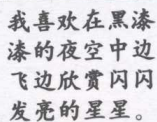 我喜欢在黑漆
漆的夜空中边
飞边欣赏闪闪
发亮的星星。